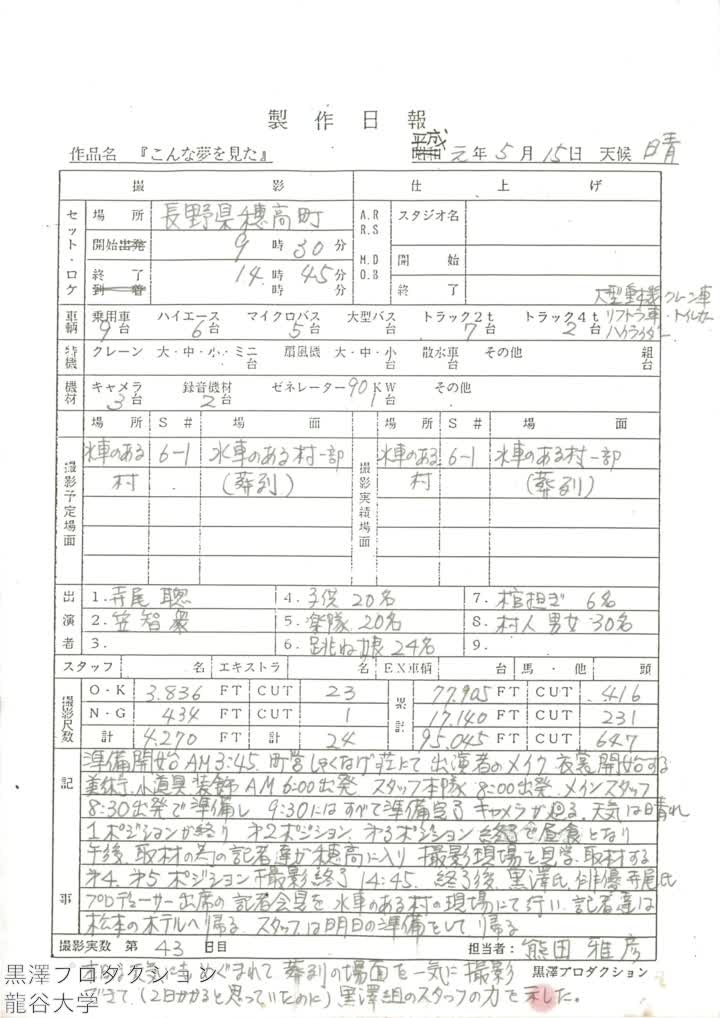 製作日報
作品名 『こんな夢を見た』 平成元年5月15日 天候 晴
撮影 仕上げ
セット・ロケ 場所 長野県穂高町 A.R R.S スタジオ名
開始出発 9時30分 M.D O.B 開始
終了到着 14時45分 終了
大型重機クレーン車
車輌 乗用車 9台 ハイエース 6台 マイクロバス 5台 大型バス 台 トラック2t 7台 トラック4t 2台 リフトラ車・トイレカー
ハイライダー
特機 クレーン 大・中・小・ミニ 台 扇風機 大・中・小 台 散水車 台 その他 組台
機材 キャメラ 3台 録音機材 2台 ゼネレーター90KW 1台 その他
撮影予定場面 場所 S# 場面 撮影実績場面 場所 S# 場面
水車のある村 6-1 水車のある村一部 水車のある村 6-1 水車のある村一部
(葬列) (葬列)
出演者 1.寺尾 聰 4.子供 20名 7.棺担ぎ 6名
2.笠智衆 5.楽隊 20名 8.村人男女 30名
3. 6.跳ね娘 24名 9.
スタッフ 名 エキストラ 名 EX車輌 台 馬・他 頭
撮影尺数 O・K 3.836 FT CUT 23 累計 77.905 FT CUT 416
N・G 434 FT CUT 1 17.140 FT CUT 231
計 4.270 FT 計 24 95.045 FT CUT 647
記事 準備開始AM3:45.町営しゃくなげ荘にて出演者のメイク衣裳開始する
美術、小道具、装飾AM6:00出発 スタッフ本隊8:00出発.メインスタッフ
8:30出発で準備し 9:30にはすべて準備完了 キャメラが廻る.天気は晴れ
1ポジションが終り 第2ポジション、第3ポジション終了で昼食となり
午後、取材の為の記者達が穂高に入り 撮影現場を見学、取材する
第4、第5ポジション 撮影終了14:45. 終了後、黒澤氏、俳優寺尾氏
プロデューサー出席の記者会見を水車のある村の現場にて行い、記者達は
松本のホテルへ帰る.スタッフは明日の準備をして帰る
撮影実数 第43日目 担当者:熊田雅彦
めぐまれて葬列の場面を一気に撮影 黒澤プロダクション
できて、(2日かかると思っていたのに)黒澤組のスタッフの力を示した。
黒澤プロダクション
龍谷大学